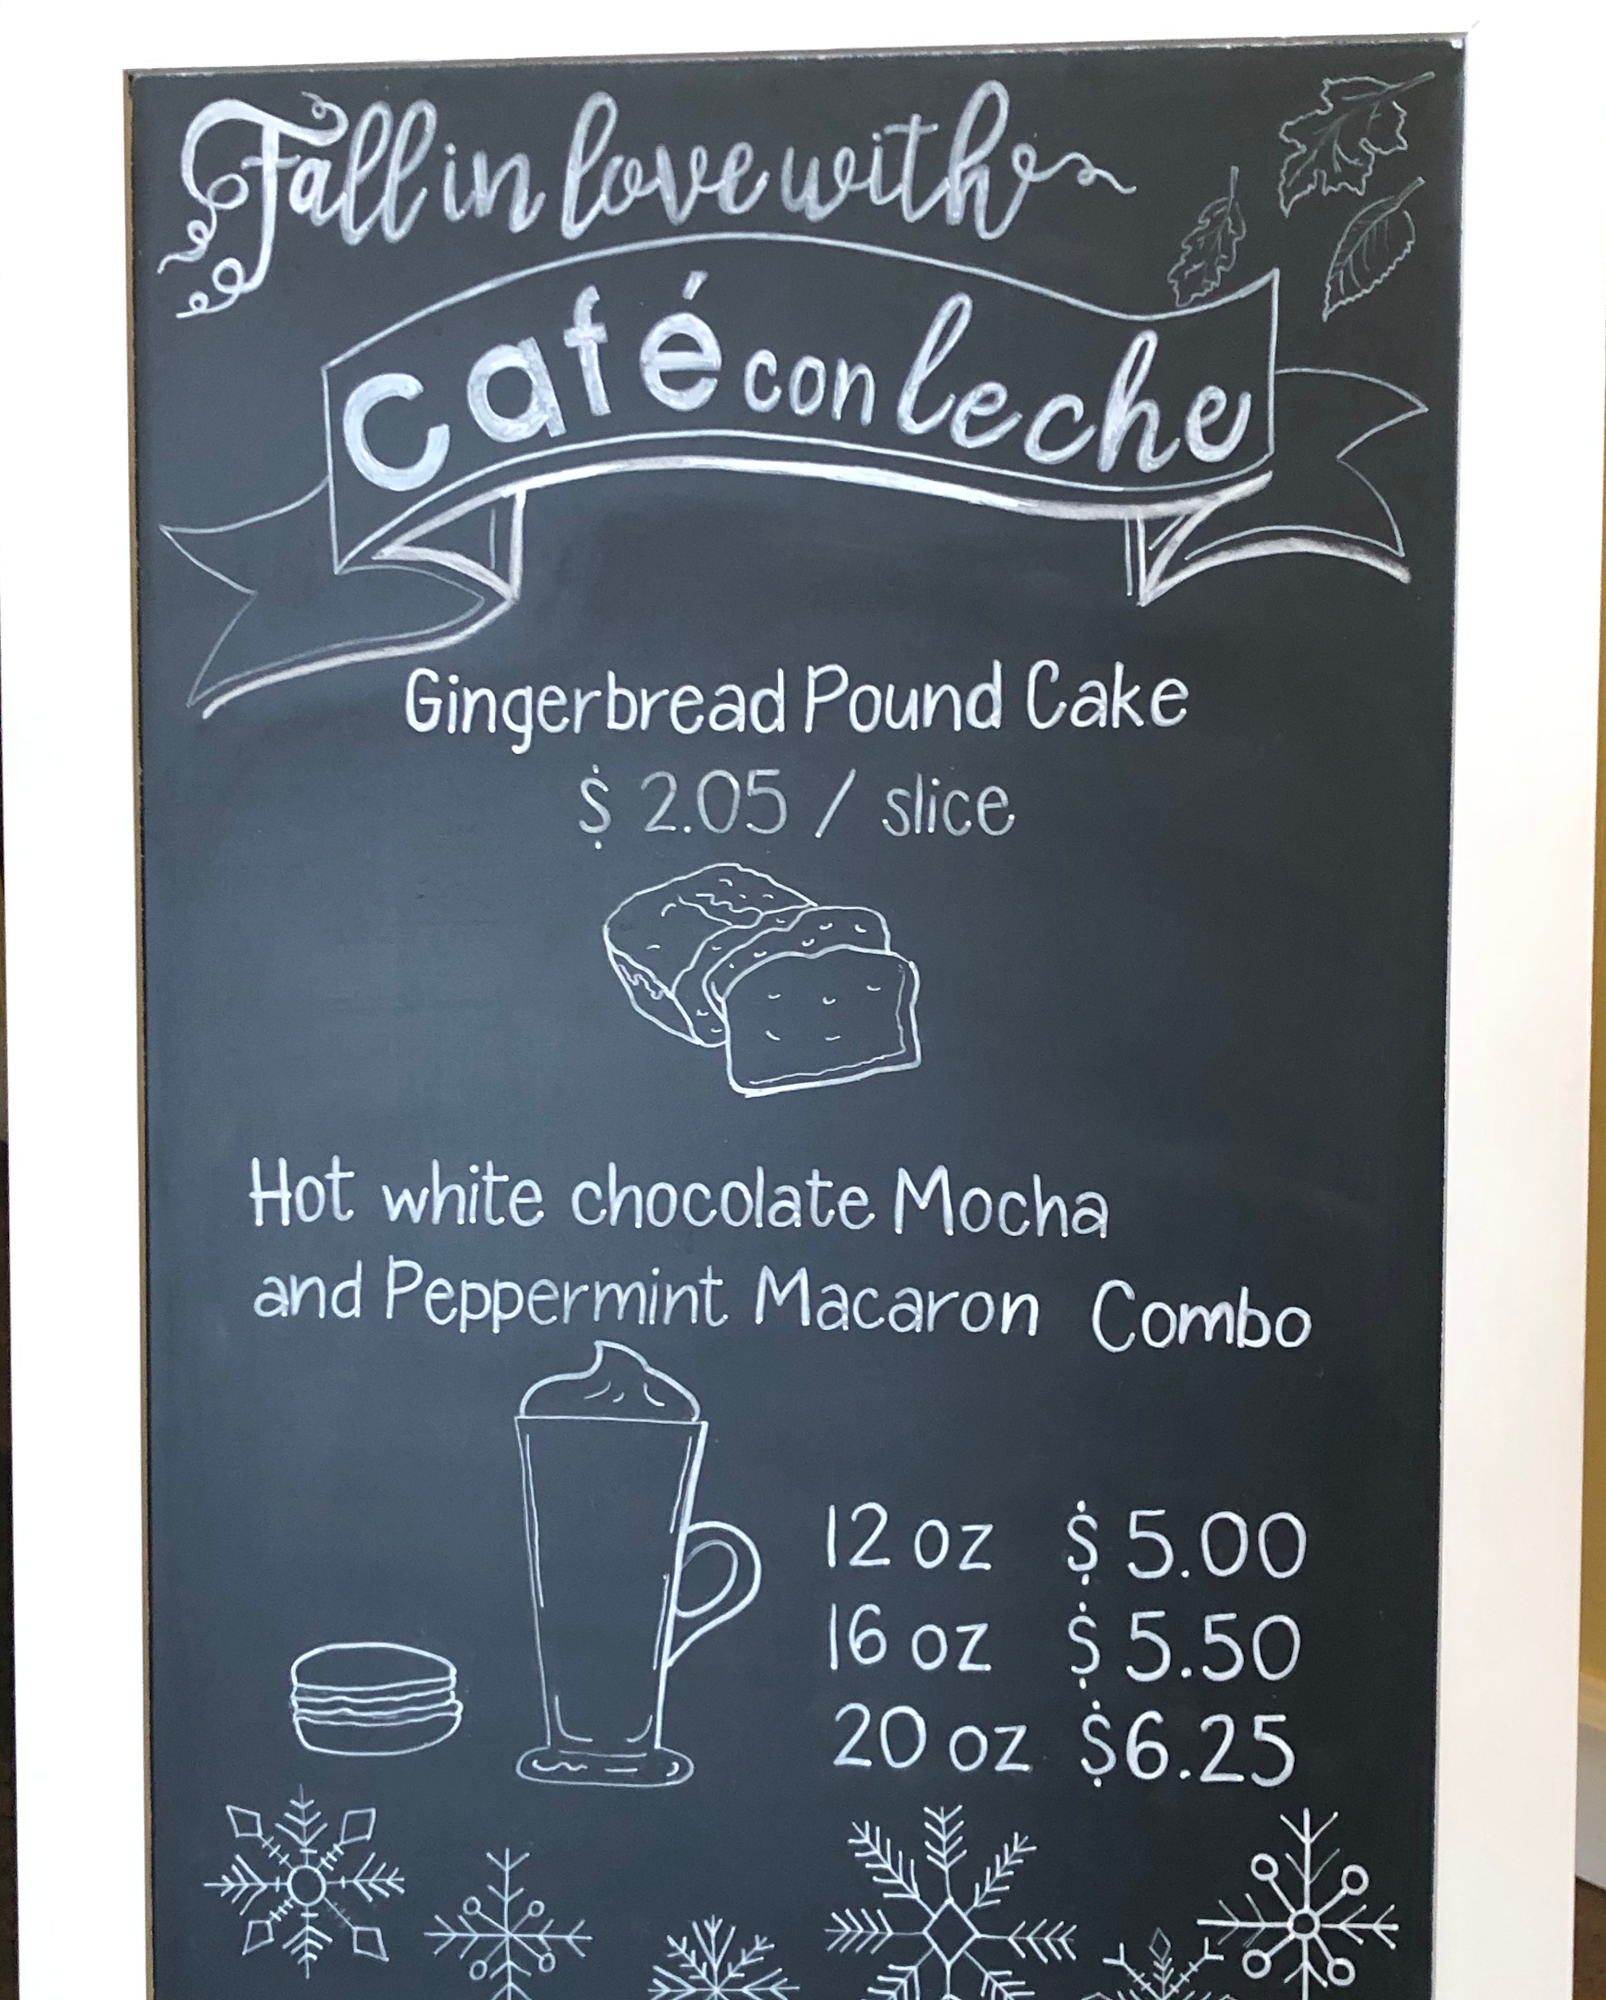 Fall in love with
café con leche
Gingerbread Pound Cake
$ 2.05 / slice
Hot white chocolate Mocha
and Peppermint Macaron Combo
12 oz $ 5.00
16 oz $ 5.50
20 oz $6.25